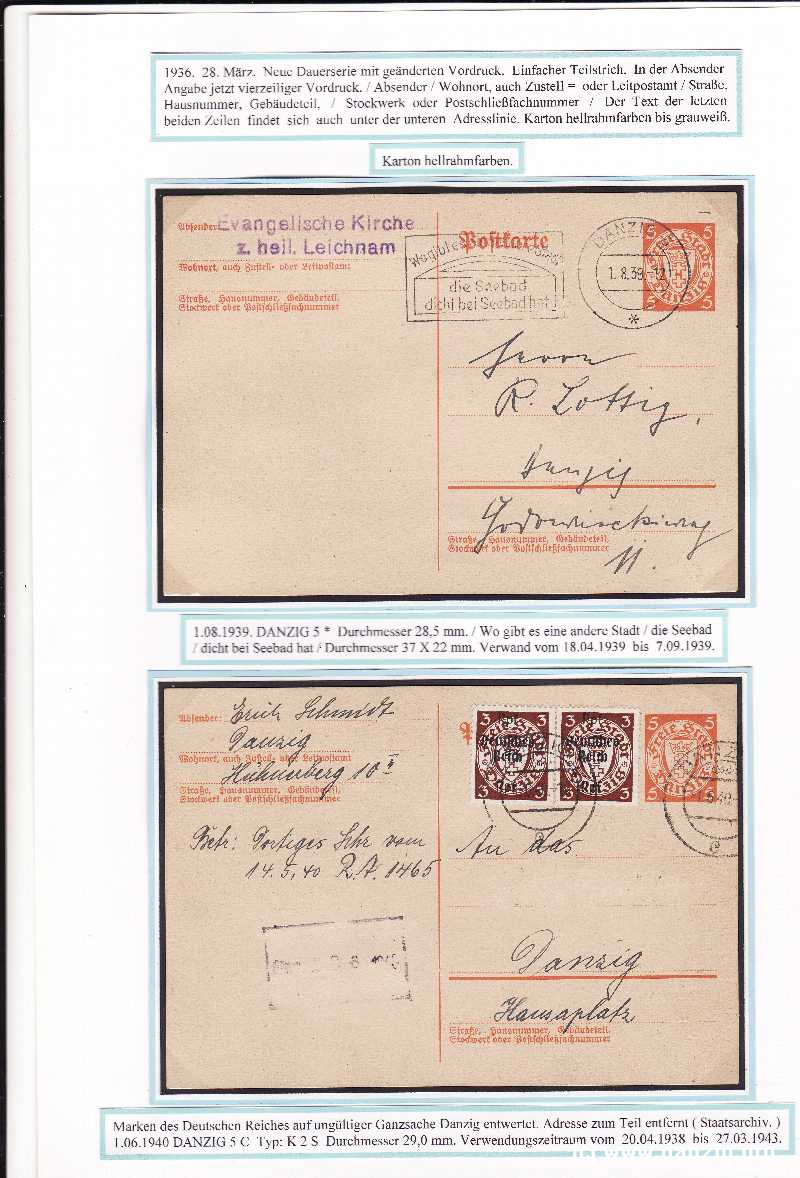 1936. 28. März. Neue Dauerserie mit geänderten Vordruck. Einfacher Teilstrich. In der Absender
Angabe jetzt vierzeiliger Vordruck. / Absender / Wohnort, auch Zustell = oder Leitpostamt / Straße,
Hausnummer, Gebäudeteil, / Stockwerk oder Postschließfachnummer / Der Text der letzten
beiden Zeilen findet sich auch unter der unteren Adresslinie. Karton hellrahmfarben bis grauweiß.
Karton hellrahmfarben.
Absender: Evangelische Kirche
z. heil. Leichnam
Wohnort, auch Zustell- oder Leitpostamt
Straße, Hausnummer, Gebäudeteil,
Stockwerk oder Postschließfachnummer
Postkarte
die Seebad
dicht bei Seebad hat
DANZIG
1.8.39.-12
5 5
Freie Stadt
DANZIG
5 5
Herrn
R. Lottig,
Danzig
Straße, Hausnummer, Gebäudeteil,
Stockwerk oder Postschließfachnummer
11.
1.08.1939. DANZIG 5 * Durchmesser 28,5 mm. / Wo gibt es eine andere Stadt / die Seebad
/ dicht bei Seebad hat / Durchmesser 37 X 22 mm. Verwand vom 18.04.1939 bis 7.09.1939.
Absender: Erich Schmidt
Danzig
Wohnort, auch Zustell- oder Leitpostamt
Hühnerberg 10
Straße, Hausnummer, Gebäudeteil,
Stockwerk oder Postschließfachnummer
3 3 3 3 5 5
Deutsches Deutsches
Reich Reich
Betr: Dortiges Schr vom
14.5.40 R.A. 1465
An das
Danzig
Hansaplatz
Straße, Hausnummer, Gebäudeteil,
Stockwerk oder Postschließfachnummer
Marken des Deutschen Reiches auf ungültiger Ganzsache Danzig entwertet. Adresse zum Teil entfernt ( Staatsarchiv. )
1.06.1940 DANZIG 5 C Typ: K 2 S Durchmesser 29,0 mm. Verwendungszeitraum vom 20.04.1938 bis 27.03.1943.